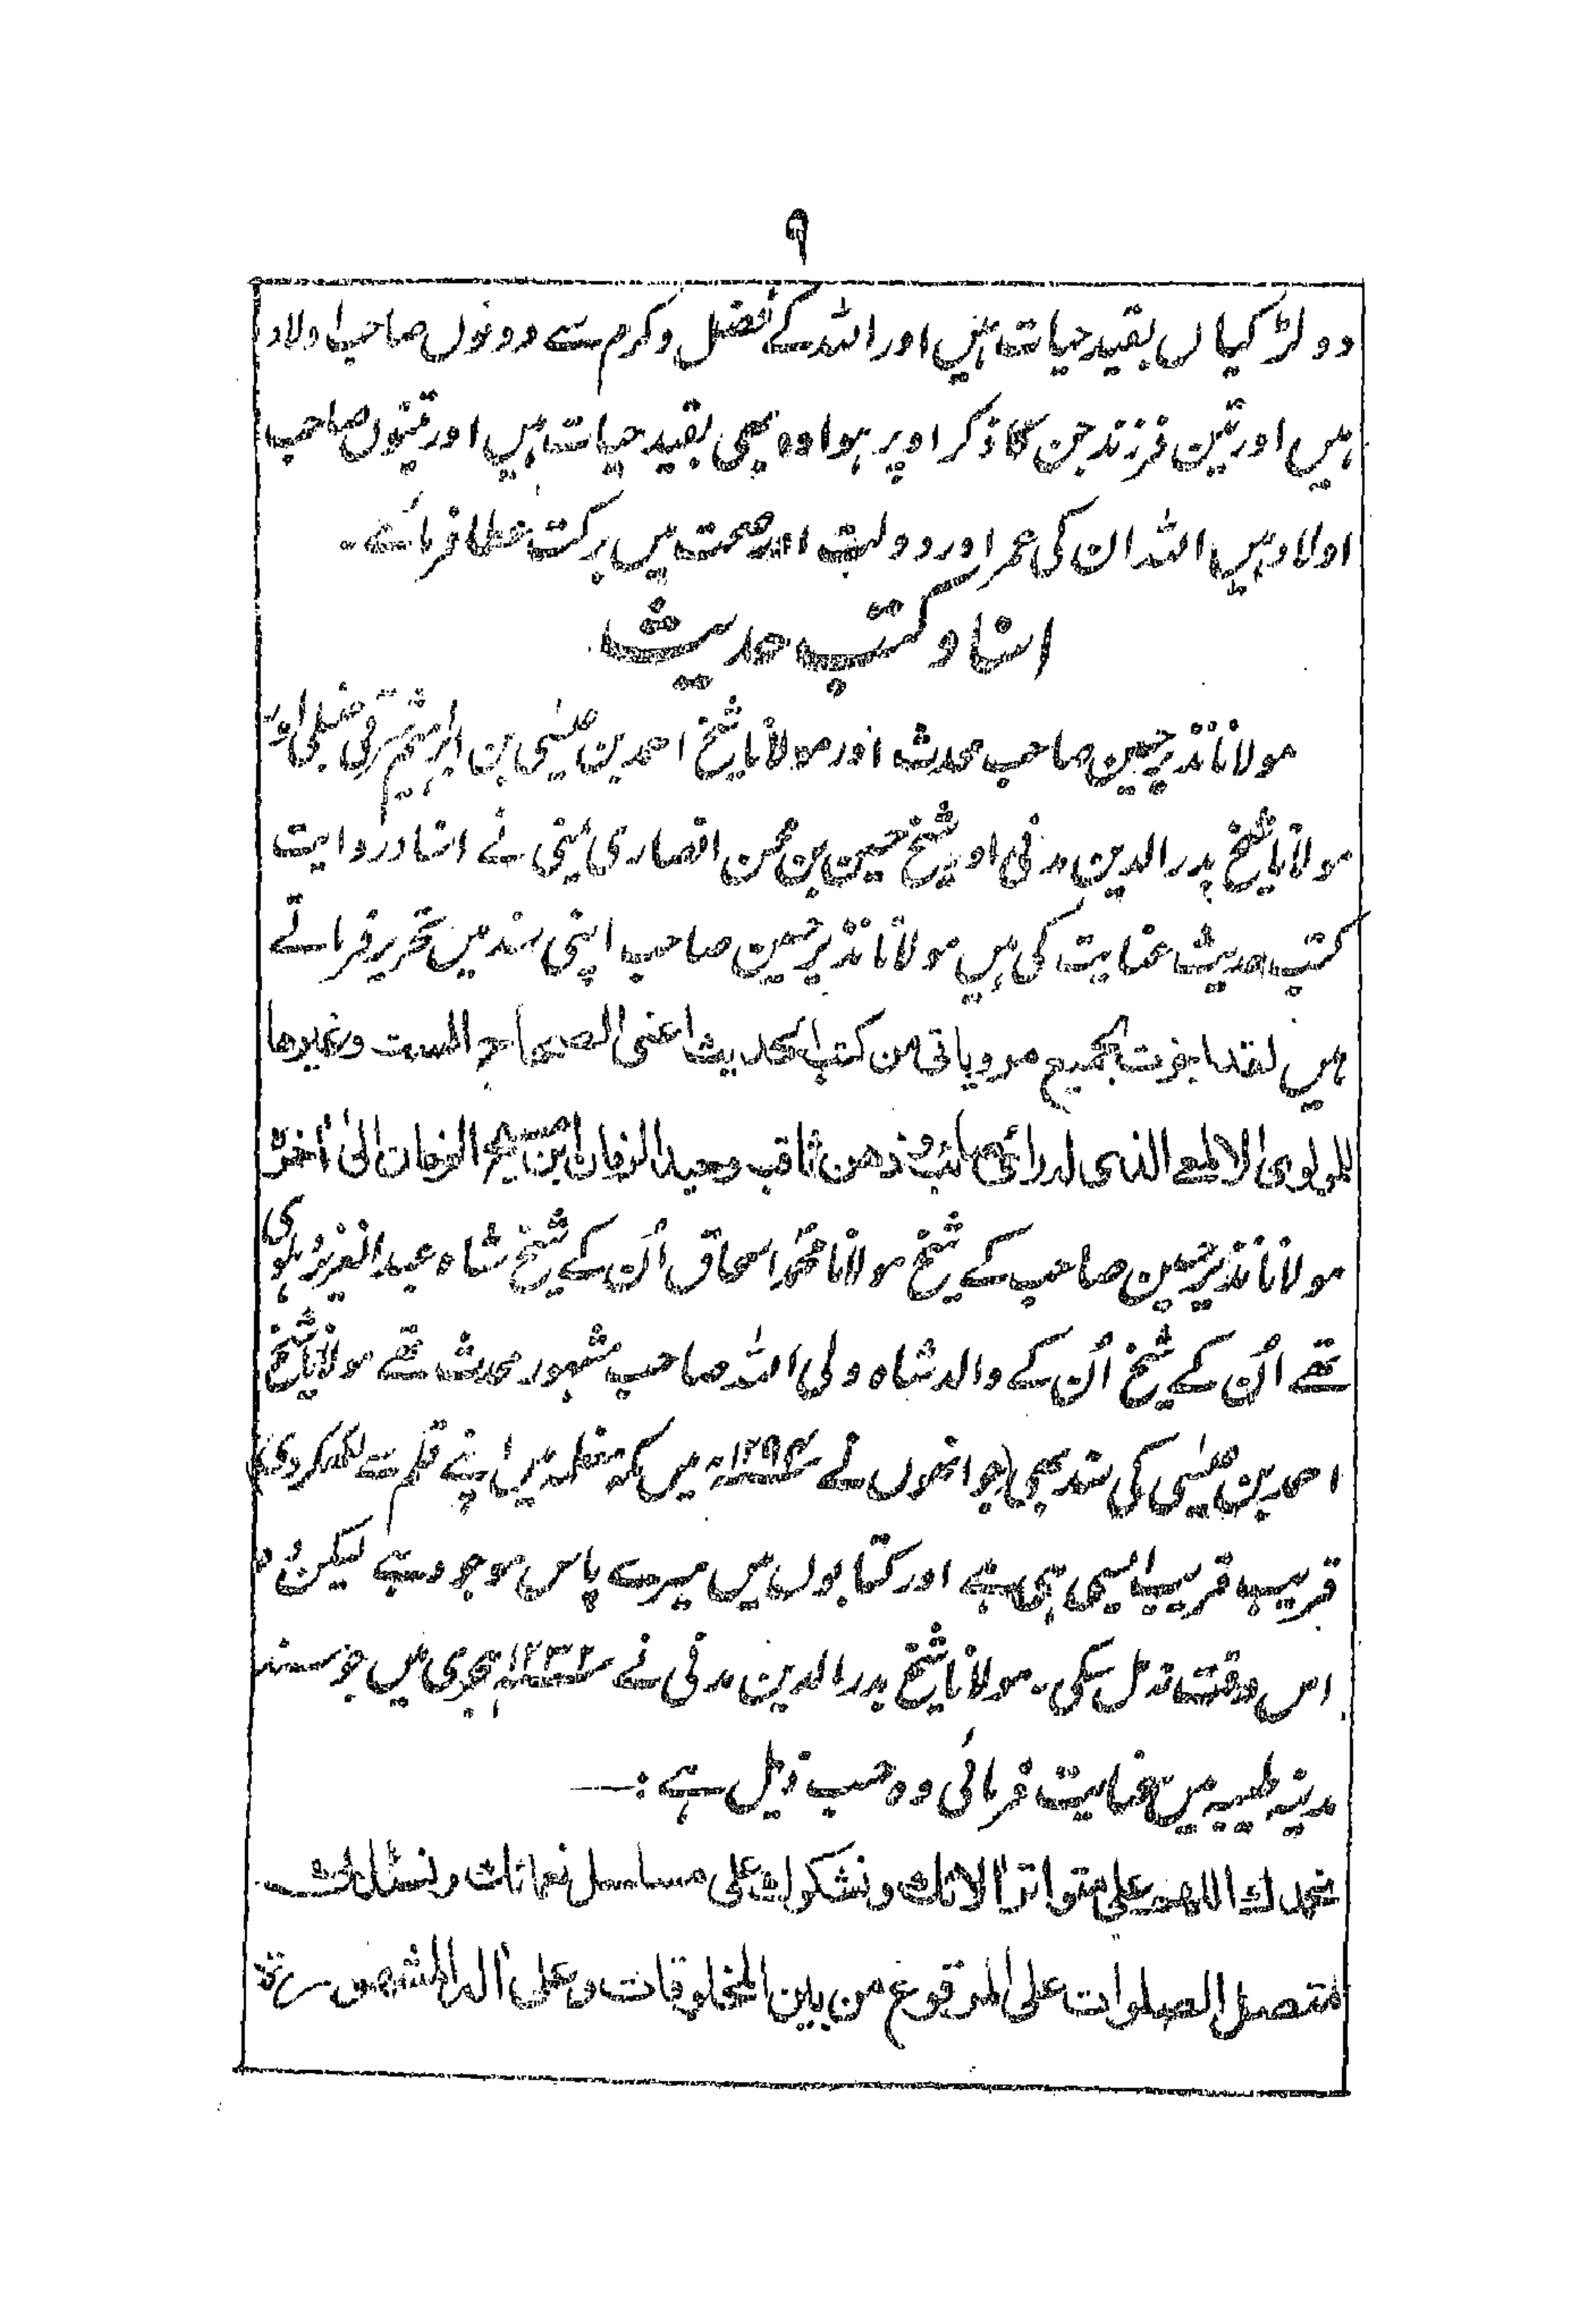 ۹
دو لڑکیاں بقید حیات ہیں اور اللہ کے فضل وکرم سے دونوں صاحب اولاد
ہیں اور تین فرزند جن کا ذکر اوپر ہوا وہ بھی بقید حیات ہیں اور تینوں صاحب
اولاد ہیں اللہ ان کی عمر اور دولت اور صحت میں برکت عطا فرمائے۔
اسناد کتب حدیث
مولانا نذیر حسین صاحب محدث اور مولانا شیخ احمد بن عیسٰی بن ابراہیم شرقی حنبلی اور
مولانا شیخ بدرالدین مدنی اور شیخ حسین بن محسن انصاری یمنی نے اسناد روایت
کتب حدیث عنایت کی ہیں مولانا نذیر حسین صاحب اپنی سند میں تحریر فرماتے
ہیں لقد اجزت بجمیع مرویاتی من کتب الحدیث اعنی الصحاح الست وغیرھا
للمولوی الالمعی الذی لہ رائی وذھن ثاقب وحید الزمان ابن مسیح الزمان الیٰ اٰخرہ
مولانا نذیر حسین صاحب کے شیخ مولانا محمد اسحاق اُن کے شیخ شاہ عبد العزیز دہلوی
تھے اُن کے شیخ اُن کے والد شاہ ولی اللہ صاحب مشہور محدث تھے مولانا شیخ
احمد بن عیسٰی کی سند بھی (جو انھوں نے ۱۲۹۴ھ میں مکہ معظمہ میں اپنے قلم سے لکھکر دی)
قریب قریب ایسی ہی ہے اور کتابوں میں میرے پاس موجود ہے لیکن وہ
اس وقت نہ مل سکی۔ مولانا شیخ بدرالدین مدنی نے ۱۲۳۲ ہجری میں جو سند
مدینہ طیبہ میں عنایت فرمائی وہ حسب ذیل ہے :—
نحمدك اللھم علی متواتر اٰلائك ونشکرك علی مسلسل نعمائك ونسئلك
متصل الصلوات علی المرفوع من بین المخلوقات وعلی اٰلہ